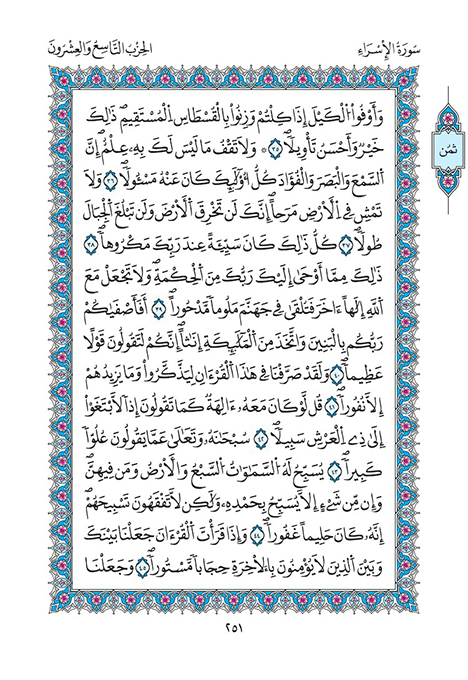 سُورَةُ الْإِسْرَاءِ
الحِزْبُ التَّاسِعُ وَالعِشْرُونَ
وَأَوْفُوا۟ اُ۬لْكَيْلَ إِذَا كِلْتُمْ وَزِنُوا۟ بِالْقُسْطَاسِ اِ۬لْمُسْتَقِيمِۖ ذَٰلِكَ
خَيْرٌ وَأَحْسَنُ تَأْوِيلاًۖ ٣٥ ۞ وَلَا تَقْفُ مَا لَيْسَ لَكَ بِهِۦ عِلْمٌۖ إِنَّ
اَ۬لسَّمْعَ وَالْبَصَرَ وَالْفُؤَادَ كُلُّ أُو۟لَٰٓئِكَ كَانَ عَنْهُ مَسْـُٔولاًۖ ٣٦ وَلَا
تَمْشِ فِے اِ۬لْأَرْضِ مَرَحاًۖ إِنَّكَ لَن تَخْرِقَ اَ۬لْأَرْضَ وَلَن تَبْلُغَ اَ۬لْجِبَالَ
طُولاًۖ ٣٧ كُلُّ ذَٰلِكَ كَانَ سَيِّئَةً عِندَ رَبِّكَ مَكْرُوهاًۖ ٣٨
ذَٰلِكَ مِمَّآ أَوْحَىٰٓ إِلَيْكَ رَبُّكَ مِنَ اَ۬لْحِكْمَةِۖ وَلَا تَجْعَلْ مَعَ
اَ۬للَّهِ إِلَٰهاً اٰخَرَ فَتُلْقَىٰ فِے جَهَنَّمَ مَلُوماً مَّدْحُوراًۖ ٣٩ أَفَأَصْفَىٰكُمْ
رَبُّكُم بِالْبَنِينَ وَاتَّخَذَ مِنَ اَ۬لْمَلَٰٓئِكَةِ إِنَٰثاًۖ إِنَّكُمْ لَتَقُولُونَ قَوْلاً
عَظِيماًۖ ٤٠ وَلَقَدْ صَرَّفْنَا فِے هَٰذَا اَ۬لْقُرْءَانِ لِيَذَّكَّرُوا۟ وَمَا يَزِيدُهُمْ
إِلَّا نُفُوراًۖ ٤١ قُل لَّوْ كَانَ مَعَهُۥٓ ءَالِهَةٌ كَمَا تَقُولُونَ إِذاً لَّابْتَغَوْا۟
اِ۪لَىٰ ذِے اِ۬لْعَرْشِ سَبِيلاًۖ ٤٢ سُبْحَٰنَهُۥ وَتَعَٰلَىٰ عَمَّا يَقُولُونَ عُلُوّاً
كَبِيراًۖ ٤٣ يُسَبِّحُ لَهُ اُ۬لسَّمَٰوَٰتُ اُ۬لسَّبْعُ وَالْأَرْضُ وَمَن فِيهِنَّۖ
وَإِن مِّن شَےْءٍ اِلَّا يُسَبِّحُ بِحَمْدِهِۦ وَلَٰكِن لَّا تَفْقَهُونَ تَسْبِيحَهُمْۖ
إِنَّهُۥ كَانَ حَلِيماً غَفُوراًۖ ٤٤ وَإِذَا قَرَأْتَ اَ۬لْقُرْءَانَ جَعَلْنَا بَيْنَكَ
وَبَيْنَ اَ۬لذِينَ لَا يُؤْمِنُونَ بِالْأٓخِرَةِ حِجَاباً مَّسْتُوراًۖ ٤٥ وَجَعَلْنَا
ثُمُن
٢٥١